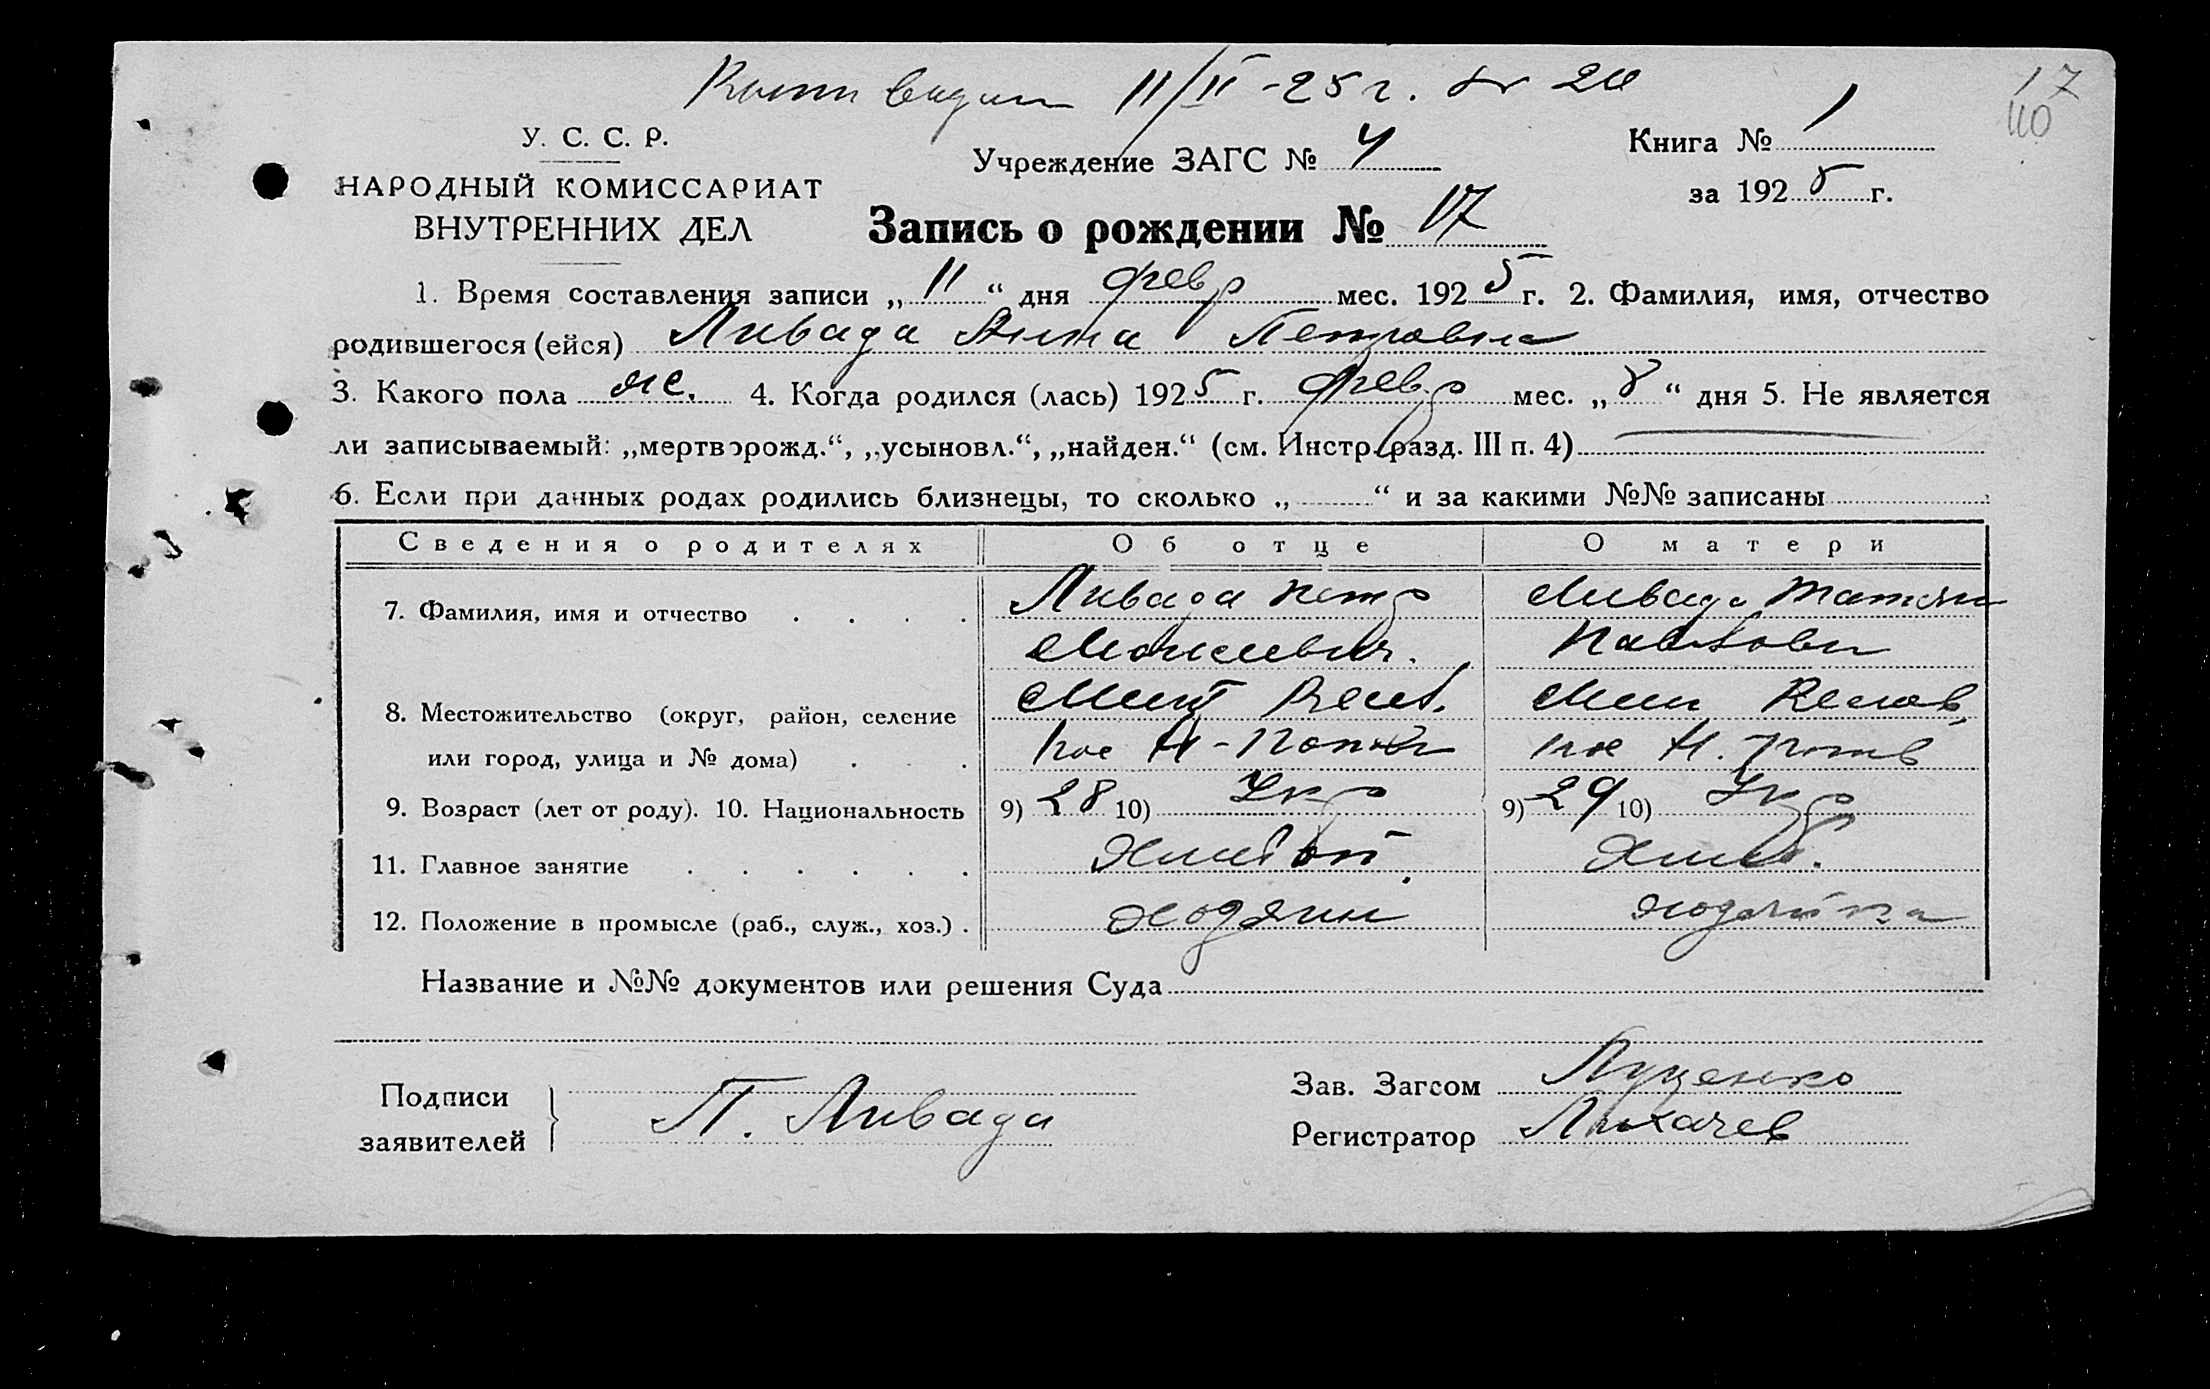 11/II - 25 г. № 20
17
110
У. С. С. Р.
НАРОДНЫЙ КОМИССАРИАТ
ВНУТРЕННИХ ДЕЛ
Учреждение ЗАГС № 4
Книга № 1
за 1925 г.
Запись о рождении № 17
1. Время составления записи „ 11 “ дня февр мес. 1925 г. 2. Фамилия, имя, отчество
родившегося (ейся) Ливада Анна Петровна
3. Какого пола ж. 4. Когда родился (лась) 1925 г. февр мес. „ 8 “ дня 5. Не является
ли записываемый: „мертворожд.“, „усыновл.“, „найден.“ (см. Инстр. разд. III п. 4)
6. Если при данных родах родились близнецы, то сколько „ “ и за какими №№ записаны
Сведения о родителях Об отце О матери
7. Фамилия, имя и отчество Ливада Петр Ливада Татьяна
Моисеевич. Павловна
8. Местожительство (округ, район, селение
или город, улица и № дома) Н- Н.
9. Возраст (лет от роду). 10. Национальность 9) 28 10) Укр 9) 29 10) Укр
11. Главное занятие
12. Положение в промысле (раб., служ., хоз.) . хозяин хозяйка
Название и №№ документов или решения Суда
Подписи
заявителей П. Ливада
Зав. Загсом Луценко
Регистратор Лихачев